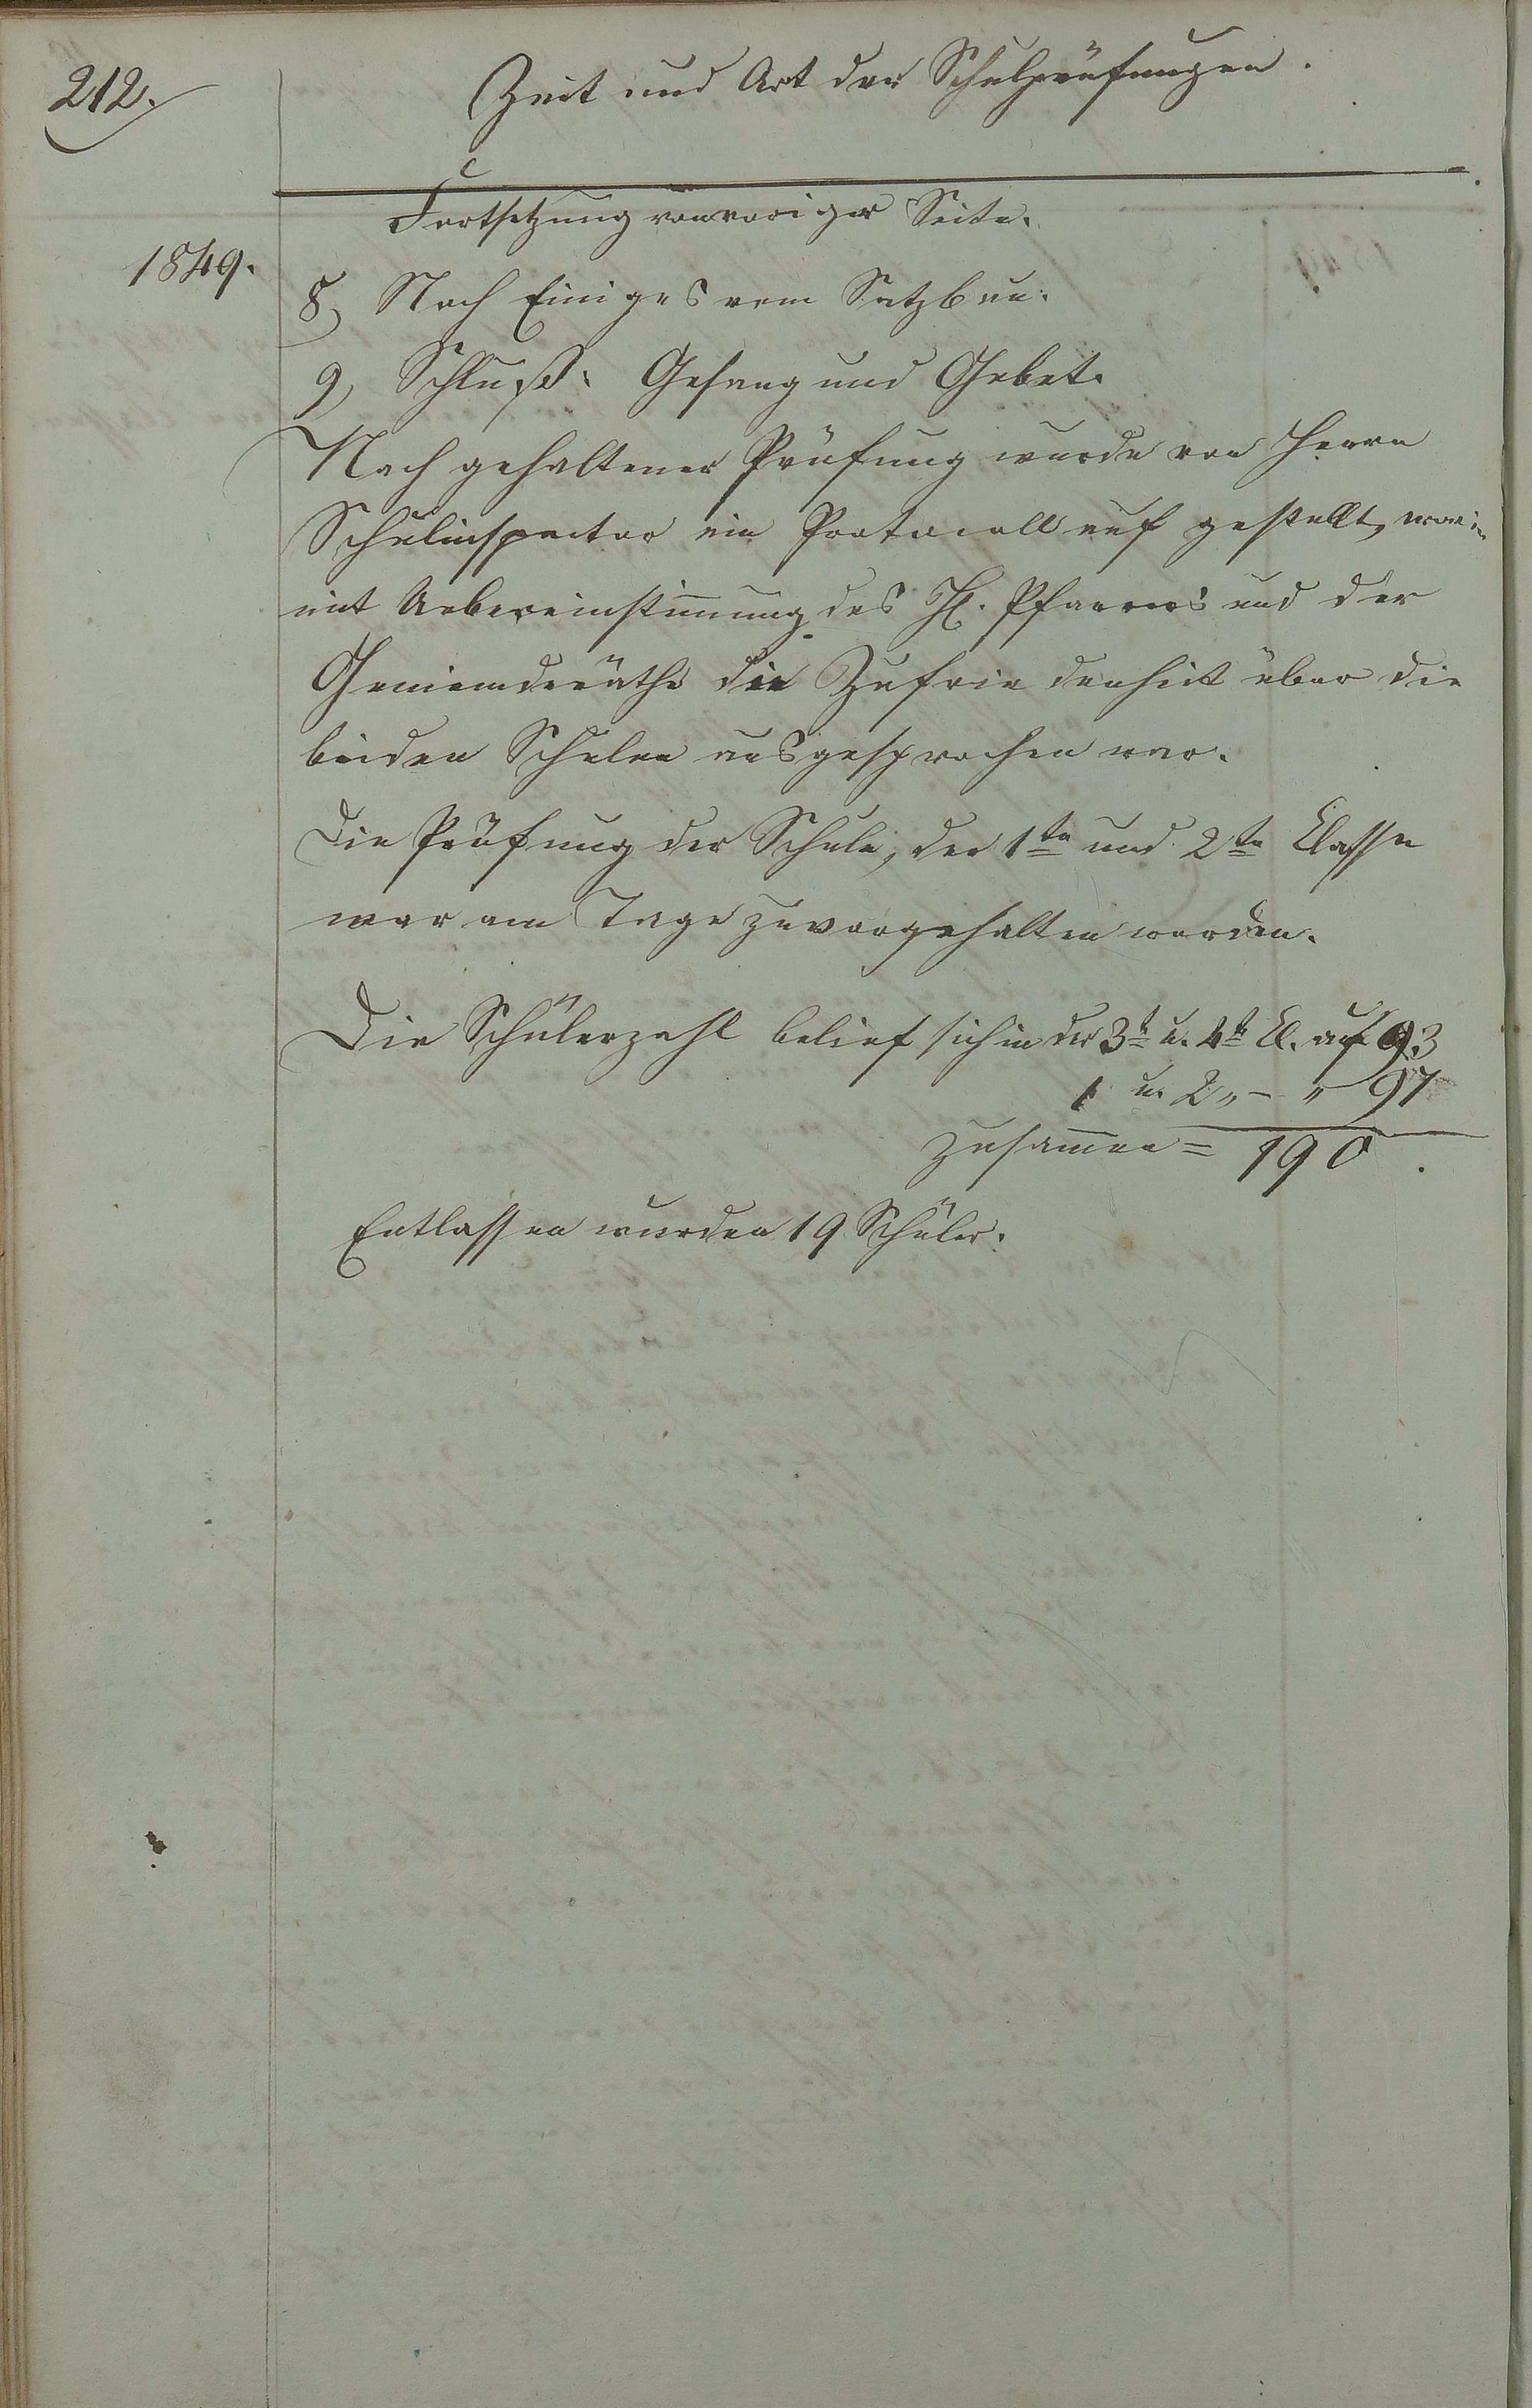 212.
Zeit und Art der Schulprüfungen.
Fortsetzung von voriger Seite.
1849.
8, Noch Einiges vom Satzbau.
9, Schluß: Gesang und Gebet.
Nach gehaltener Prüfung wurde von Herrn
Schulinspector ein Protocoll auf gestellt, worin
mit Uebereinstim̄ung des H. Pfarrers und der
Gemeinderäthe die Zufriedenheit über die
beiden Schulen ausgesprochen war.
Die Prüfung der Schule, der 1ten und 2ten Classe
war am Tage zuvor gehalten worden.
Die Schülerzahl belief sich in der 3t u. 4t Cl. auf 93
1 u. 2 „ – „ 97
Zusam̄en = 190.
Entlassen wurden 19 Schüler.